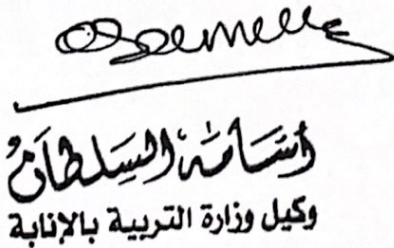 أسامة السلطان
وكيل وزارة التربية بالإنابة